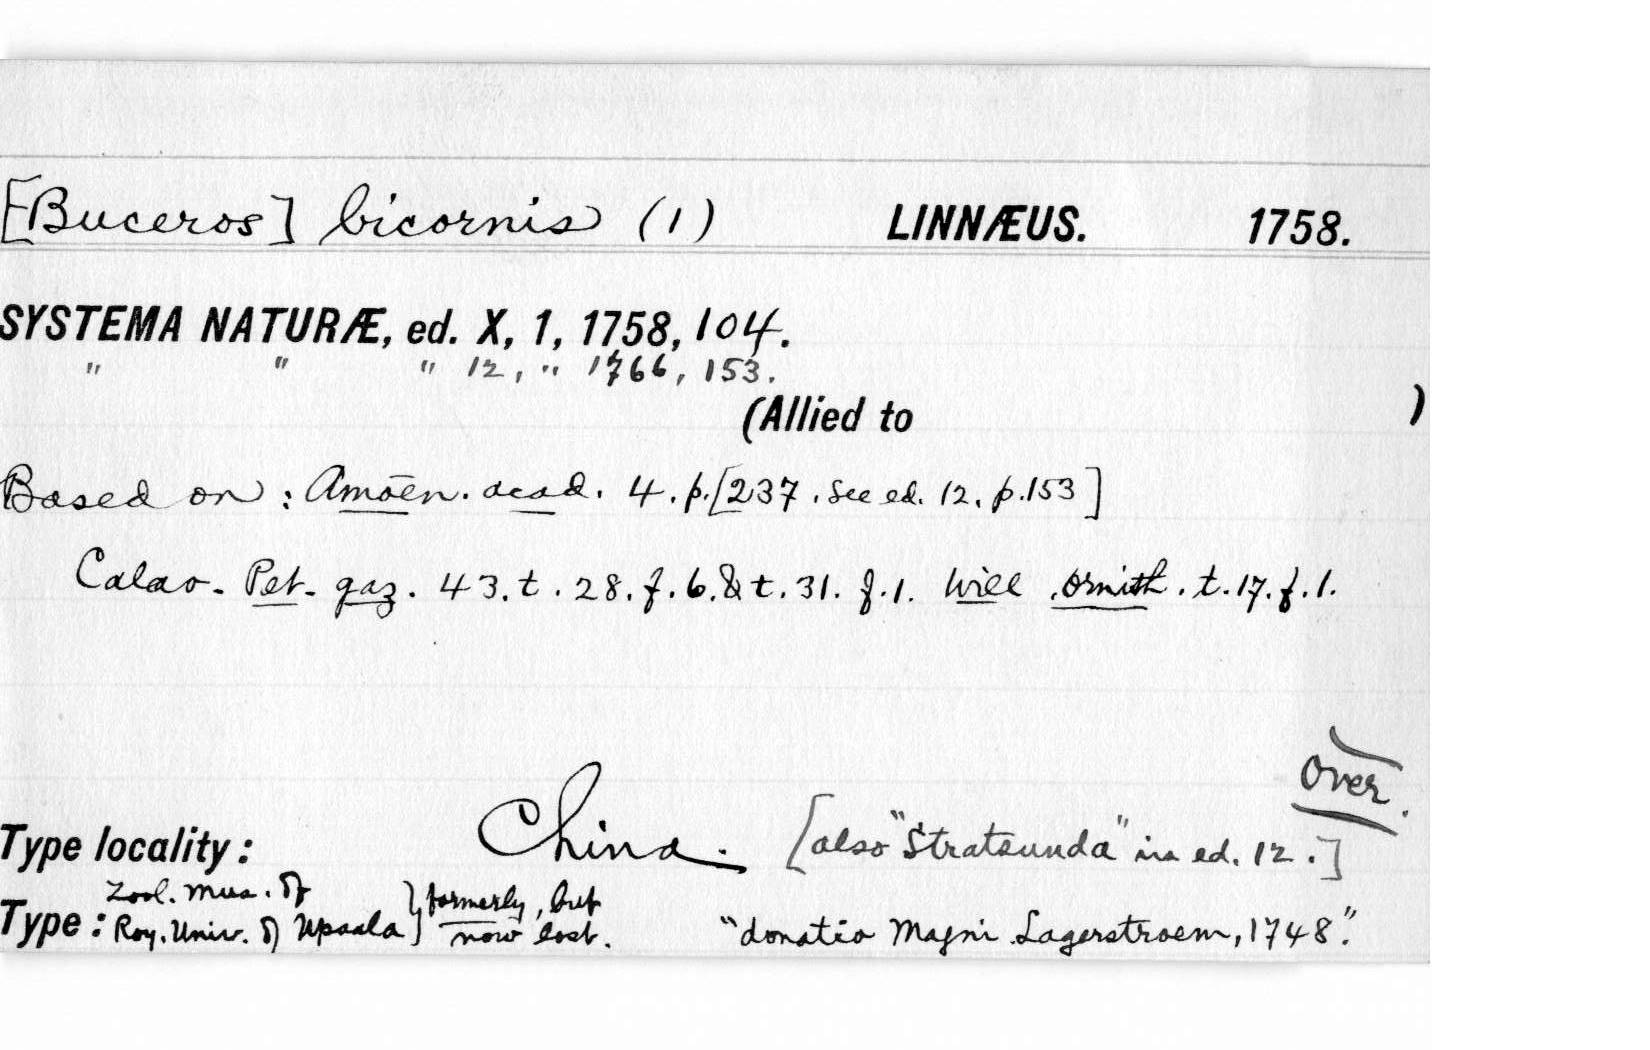 [Buceros] bicornis (1) LINNÆUS. 1758.
SYSTEMA NATURÆ, ed. X, 1, 1758, 104.
" " " 12, " 1766, 153.
(Allied to )
Based on: Amoen. acad. 4. p. [237. See ed. 12. p. 153]
Calao. Pet. gaz. 43. t. 28. f. 6. & t. 31. f. 1. Will. ornith. t. 17. f. 1.
Over.
Type locality: China. [also "Stratsunda" in ed. 12.]
Type: Zool. Mus. of Roy. Univ. of Upsala } formerly, but now lost. "donatio Magni Lagerstroem, 1748."